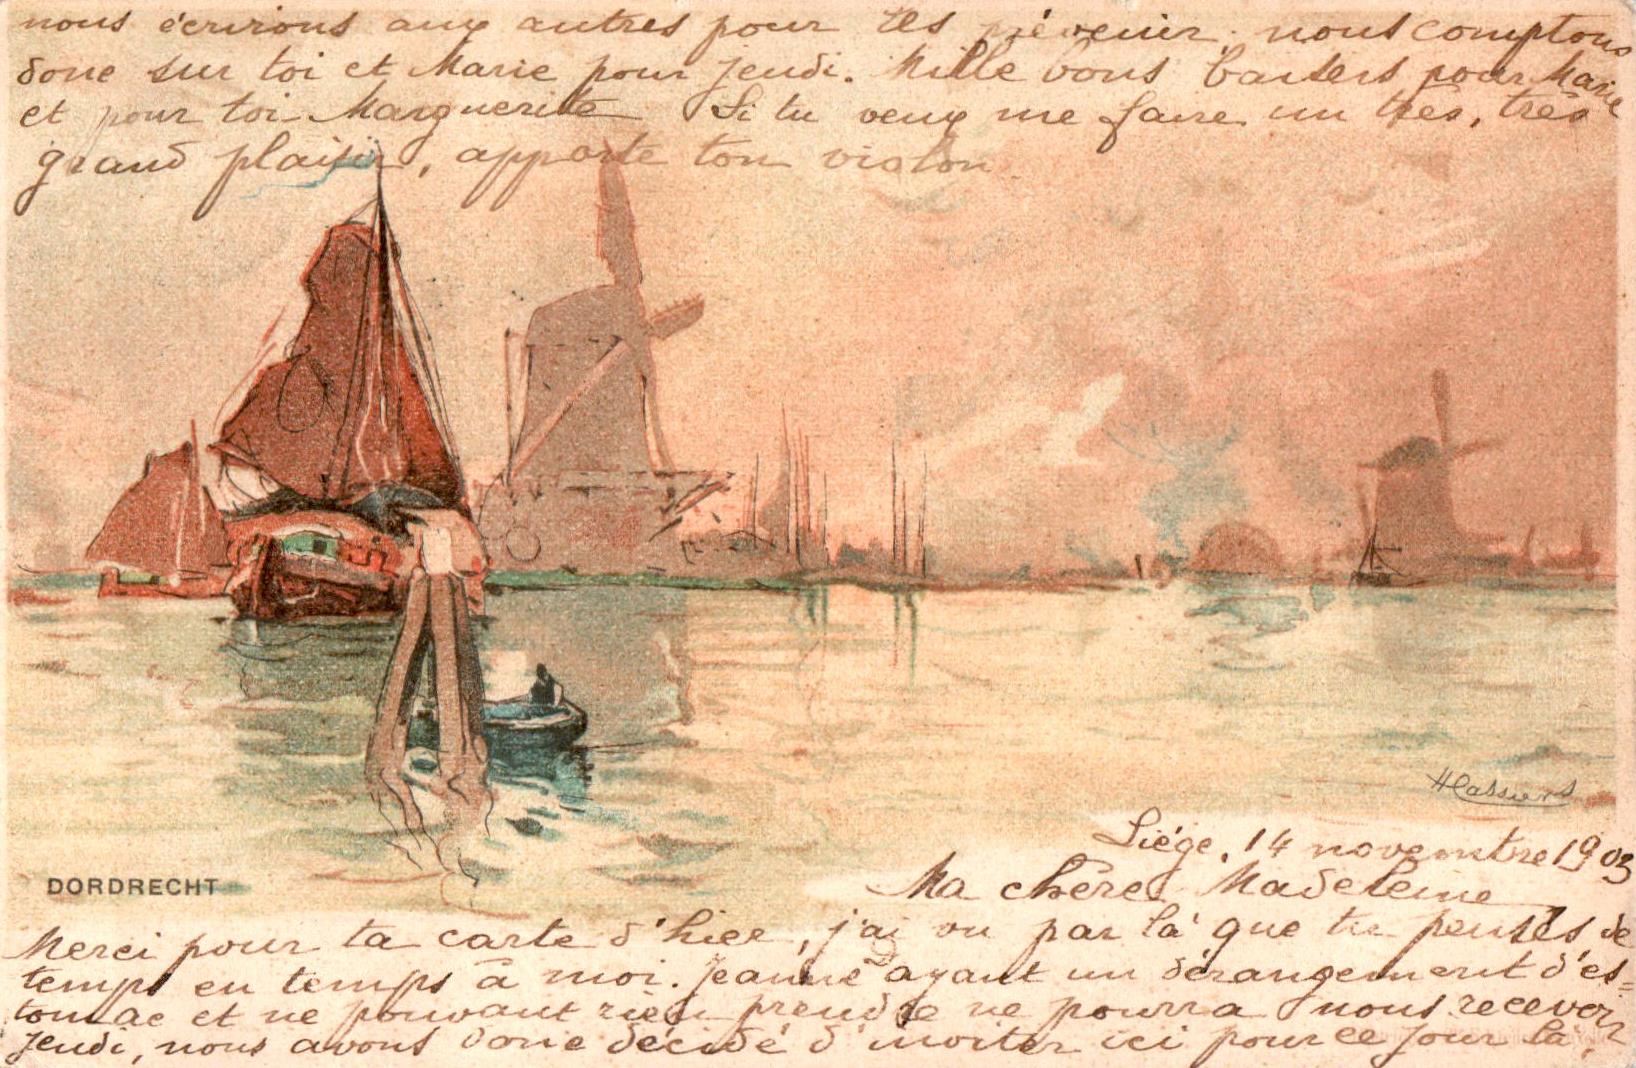 Liége, 14 novembre 1903
Ma chère Madeleine
Merci pour ta carte d'hier, j'ai vu par là que tu penses de
temps en temps à moi. Jeanne ayant un dérangement d'es=
tomac et ne pouvant rien prendre ne pourra nous recevoir
jeudi, nous avons donc décidé d'inviter ici pour ce jour là,
nous écrirons aux autres pour les prévenir, nous comptons
donc sur toi et Marie pour jeudi. Mille bons baisers pour Marie
et pour toi Marguerite Si tu veux me faire un très, très
grand plaisir, apporte ton violon
HCassiers
DORDRECHT